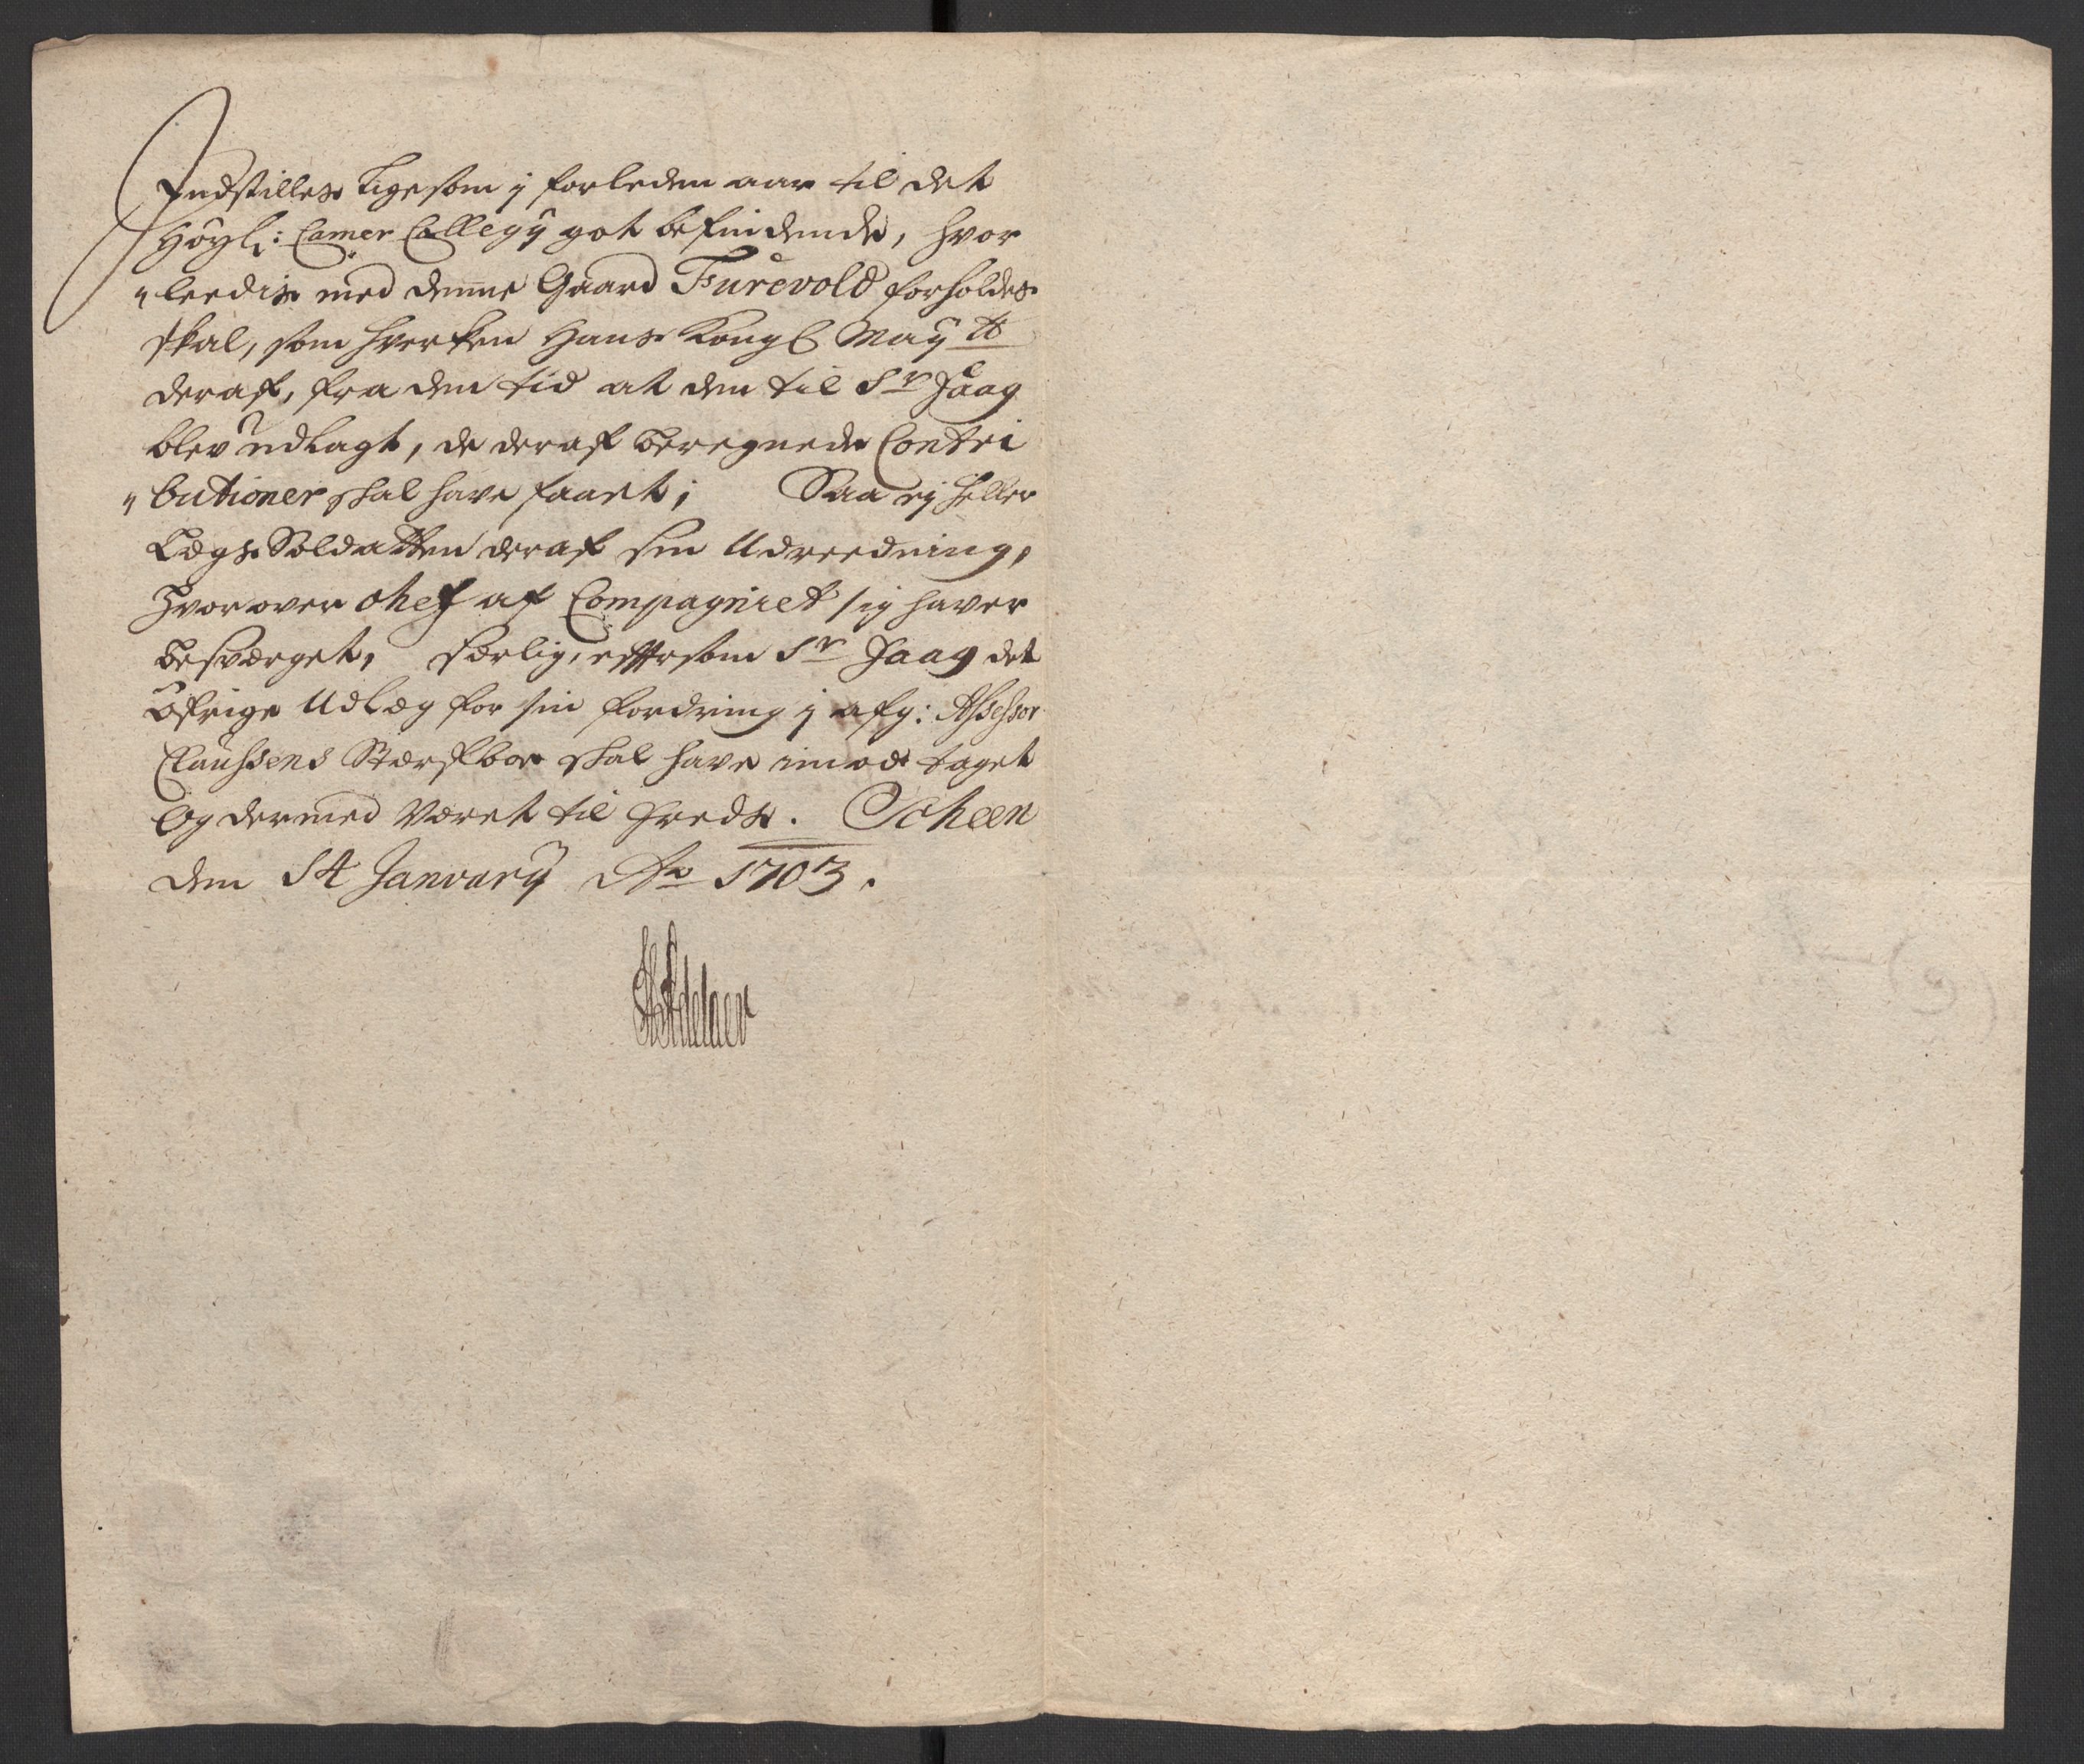 Indstilles Ligesom j forleden aar til det
Høyl: Camer Collegij got befindende, hvor
„leedis med denne Gaard Furevold forholdes
skal, som hverken Hans Kongl Mayᵗᵗ
deraf, fra den tid at den til Sʳ Jaag
blev udlagt, de deraf beregnede Contri
„butioner skal have faaet; Saa ej heller
Lægs Soldatten deraf sin Udreedning,
hvorover chef af Compagniet sig haver
besværget, særlig, efftersom Sʳ Jaag det
øfrige Udlæg for sin fordring j afg: Assessor
Claussens Stærfboe skal have imod taget
Og dermed Været til freds. Scheen
den 14 Januarij Aᵒ 1703.
HAdelaer